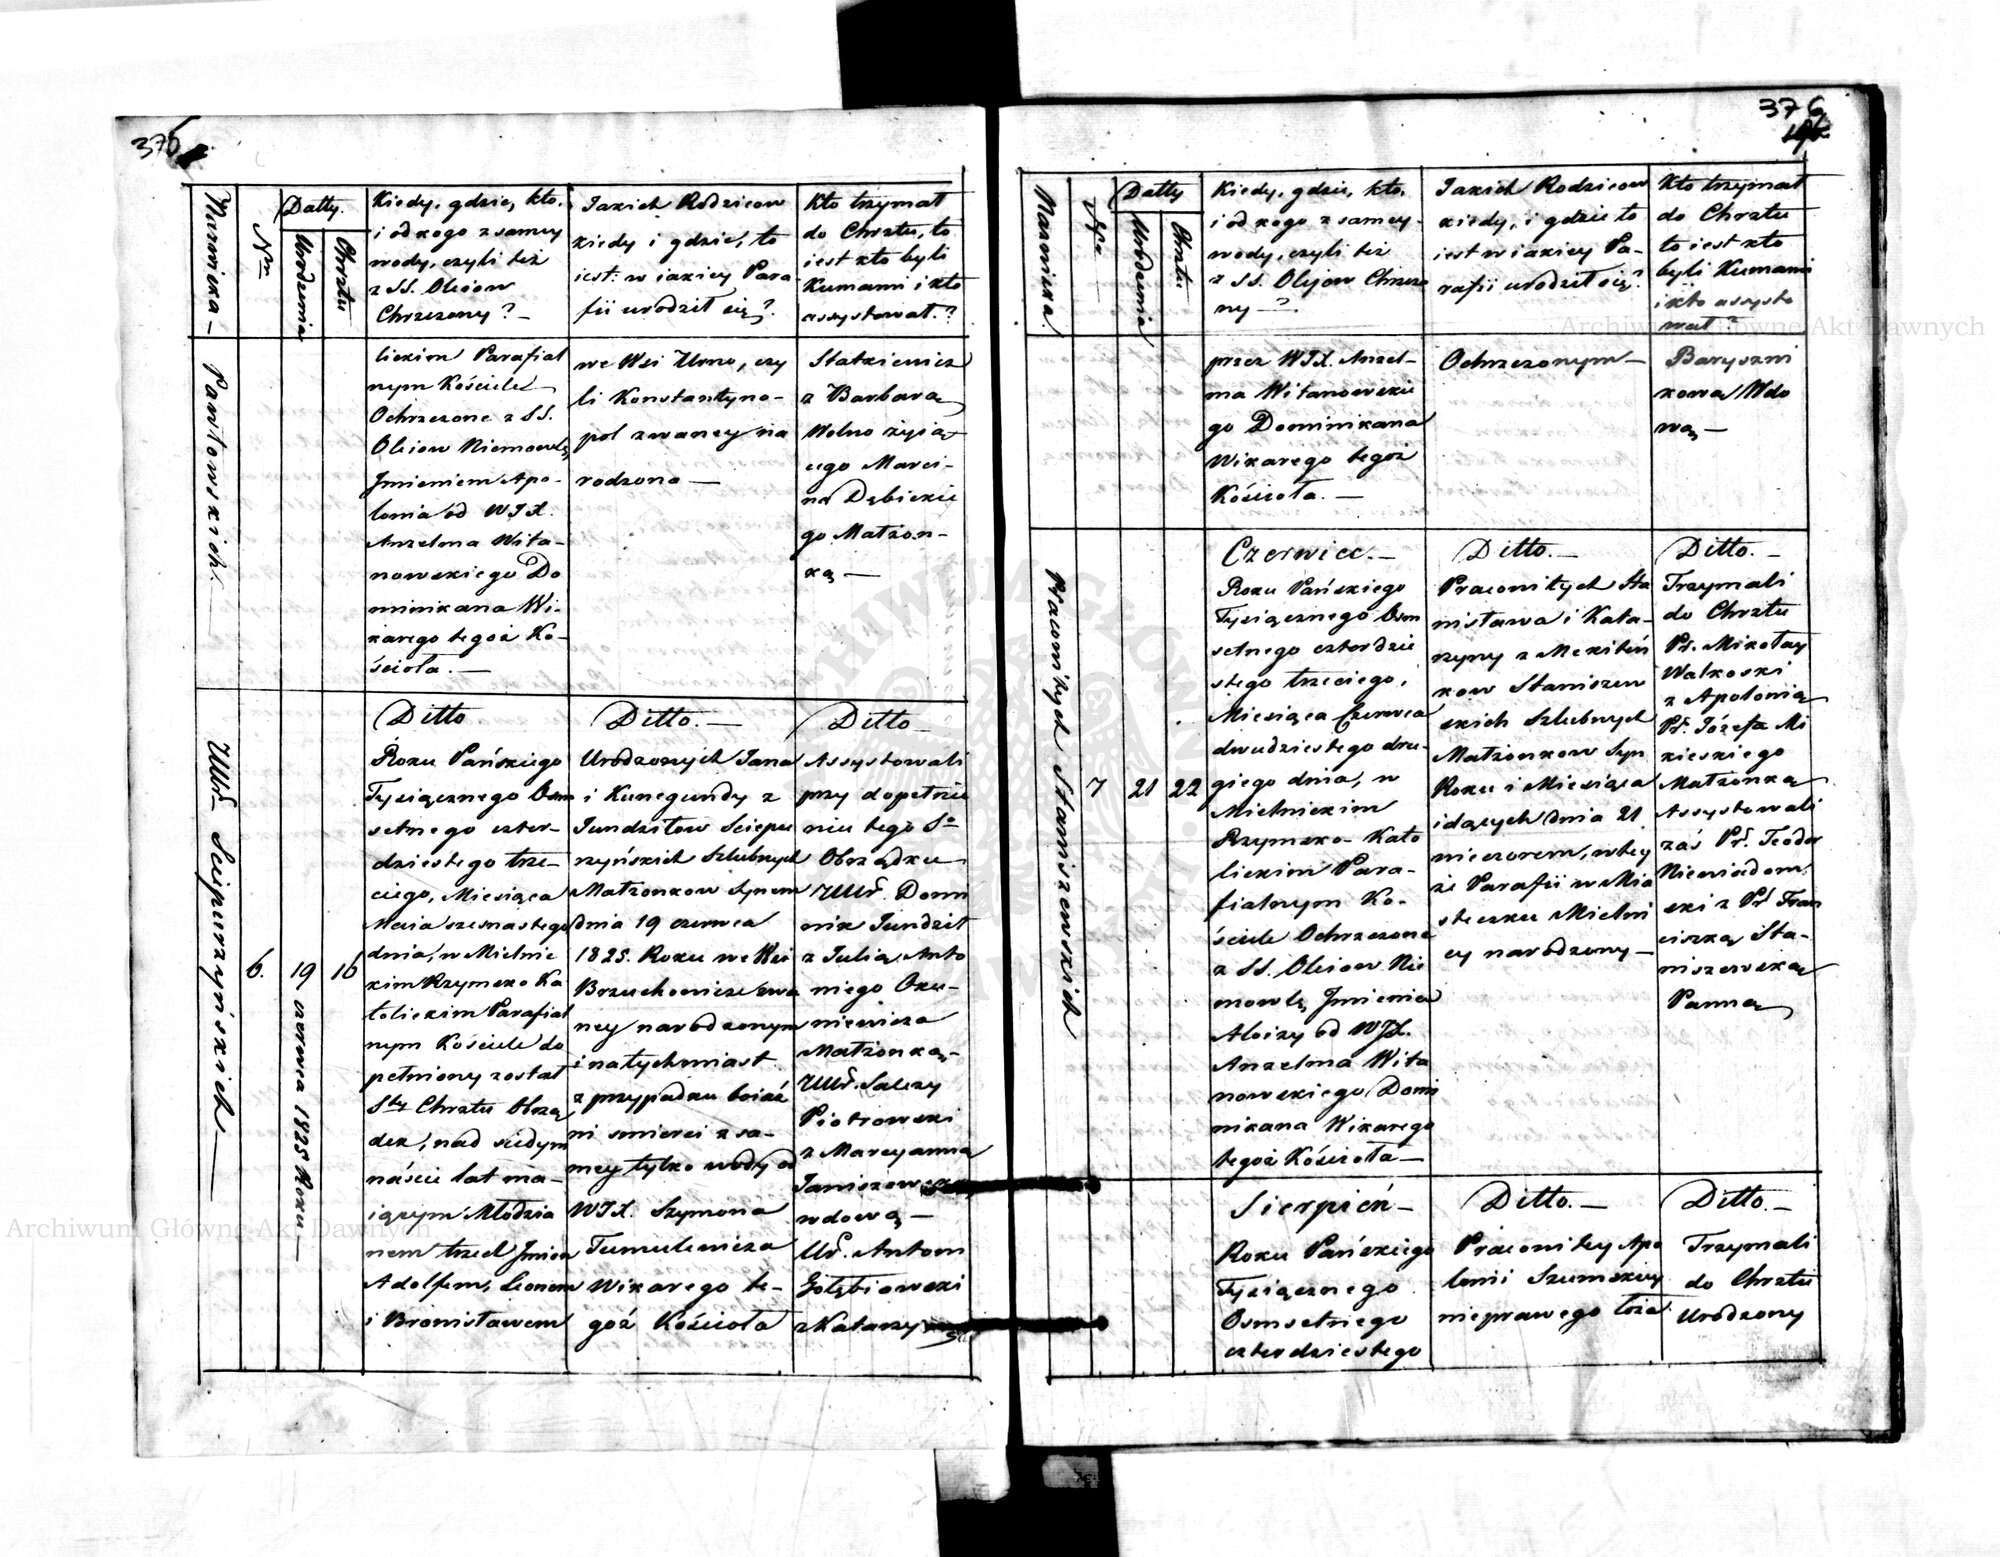 375
Nazwiska —
Nrm
Datty.
Urodzenia
Chrztu
Kiedy, gdzie, kto,
i od kogo z samey
wody, czyli też
z SS. Oleiow
Chrzczony? —
Jakich Rodzicow
kiedy i gdzie, to
iest: w iakiey Para-
fii urodził się?
Kto trzymał
do Chrztu, to
iest kto byli
Kumami i kto
assystował.?
Pawłowskich. —
lickim Parafial
nym Kościele
Ochrzczone z SS.
Oleiow Niemowlę
Jmieniem Apo-
lonia od WJX.
Anzelma Wita-
nowskiego Do
minikana Wi-
karego tegoż Ko-
ścioła. —
we Wsi , czy
li Konstantyno-
pol zwaney na
rodzona —
Statkiewicz
z Barbarą
Wolno żyią-
cego Marci-
na Dębickie
go Małżon-
ką —
UUr. Sciepurzyńskich —
6.
19 czerwca 1825 Roku —
16
Ditto
Roku Pańskiego
Tysiącznego Osm
setnego czter-
dziestego trze-
ciego, Miesiąca
Maia szesnastego
dnia, w Mielnic
kim Rzymsko Ka
tolickim Parafial
nym Kościele do
pełniony został
Sty Chrztu Obrzą
dek, nad siedym
naście lat ma-
iącym Młodzia
nem trzech Jmion
Adolfem, Leonem
i Bronisławem
Ditto. —
Urodzonych Jana
i Kunegundy z
Jundziłow Sciepu
rzyńskich Szlubnych
Małżonkow Synem
dnia 19 czerwca
1825. Roku we Wsi
Brzuchowicze zwa
ney narodzonym
i natychmiast
z przypadku boiaź
ni smierci z sa-
mey tylko wody od
WJX. Szymona
Tumulewicza
Wikarego te-
goż Kościoła
Ditto
Assystowali
przy dopełnie
niu tego So
Obrządku
UUr. Domi
nik Jundził
z Julią Anto
niego Oku-
niewicza
Małżonką —
UUr. Salezy
Piotrowski
z Marcyanną
Janiszewską
wdową —
Ur. Antoni
Gołębiowski
z Katarzy
376
Nazwiska.
Nr —
Datty
Urodzenia
Chrztu
Kiedy, gdzie, kto,
i od kogo z samey-
wody, czyli też
z SS. Olejow Chrzczo
ny —?
Jakich Rodzicow
kiedy, i gdzie to
iest w iakiey Pa-
rafii urodził się?
Kto trzymał
do Chrztu
to iest kto
byli Kumami
i kto assysto
wał?
przez WJX. Anzel-
ma Witanowskie
go Dominikana
Wikarego tegoż
Kościoła. —
Ochrzczonym —
Baryszni
kową Wdo
wą —
Pracowitych Staniszewskich
7
21
22
Czerwiec. —
Roku Pańskiego
Tysiącznego Osm
setnego czterdzie
stego trzeciego,
Miesiąca Czerwca
dwudziestego dru-
giego dnia, w
Mielnickim
Rzymsko-Kato
lickim Para-
fialnym Ko-
ściele Ochrzczone
z SS. Oleiow Nie
mowlę, Jmienia
Aloizy od WJX.
Anzelma Wita
nowskiego Domi
nikana Wikarego
tegoż Kościoła —
Ditto. —
Pracowitych Sta
nisława i Kata-
rzyny z Mekituń
kow Staniszew
skich Szlubnych
Małżonkow Syn
Roku i Miesiąca
idących dnia 21
wieczorem, w tey
że Parafii w Mia
steczku Mielni
cy narodzony —
Ditto. —
Trzymali
do Chrztu
Pr. Mikołay
Walkoski
z Apolonią
Pr. Józefa Mi
kieskiego
Małżonką
Assystowali
zaś Pr. Teodor
Niewiadom-
ski z Pr Fran
ciszką Sta-
niszewską
Panną
Sierpień —
Roku Pańskiego
Tysiącznego
Osmsetnego
czterdziestego
Ditto. —
Pracowitey Apo
lonii Szumskiey
nieprawego łoża
Ditto. —
Trzymali
do Chrztu
Urodzony
Archiwum Główne Akt Dawnych
Archiwum Główne Akt Dawnych